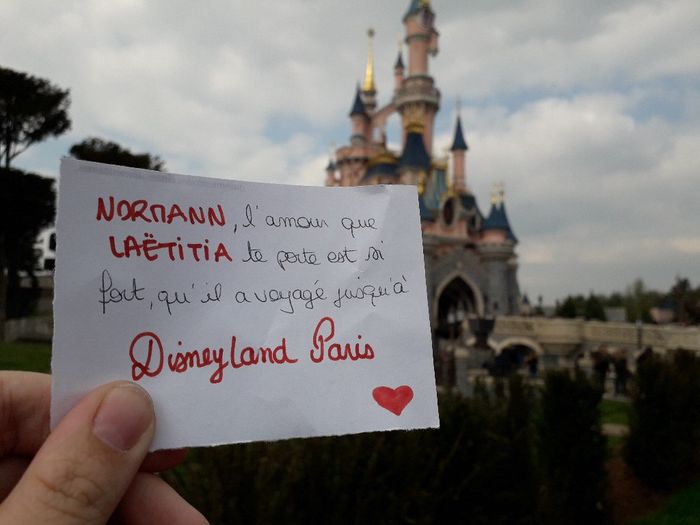 NORMANN, l'amour que
LAËTITIA te porte est si
fort, qu'il a voyagé jusqu'à
Disneyland Paris